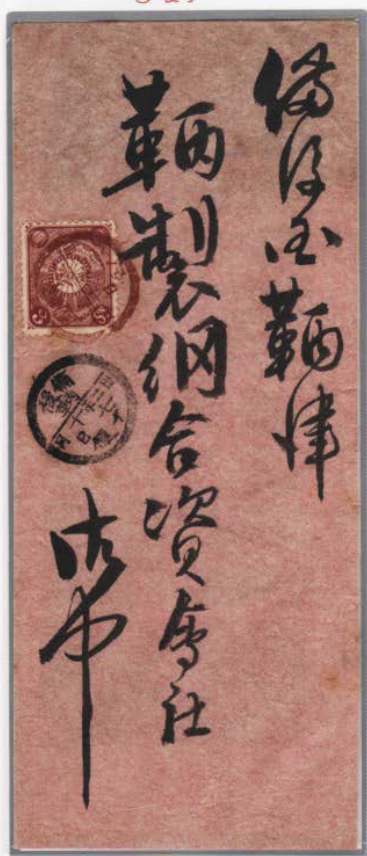 備後国鞆津
鞆製綱合資會社
御中